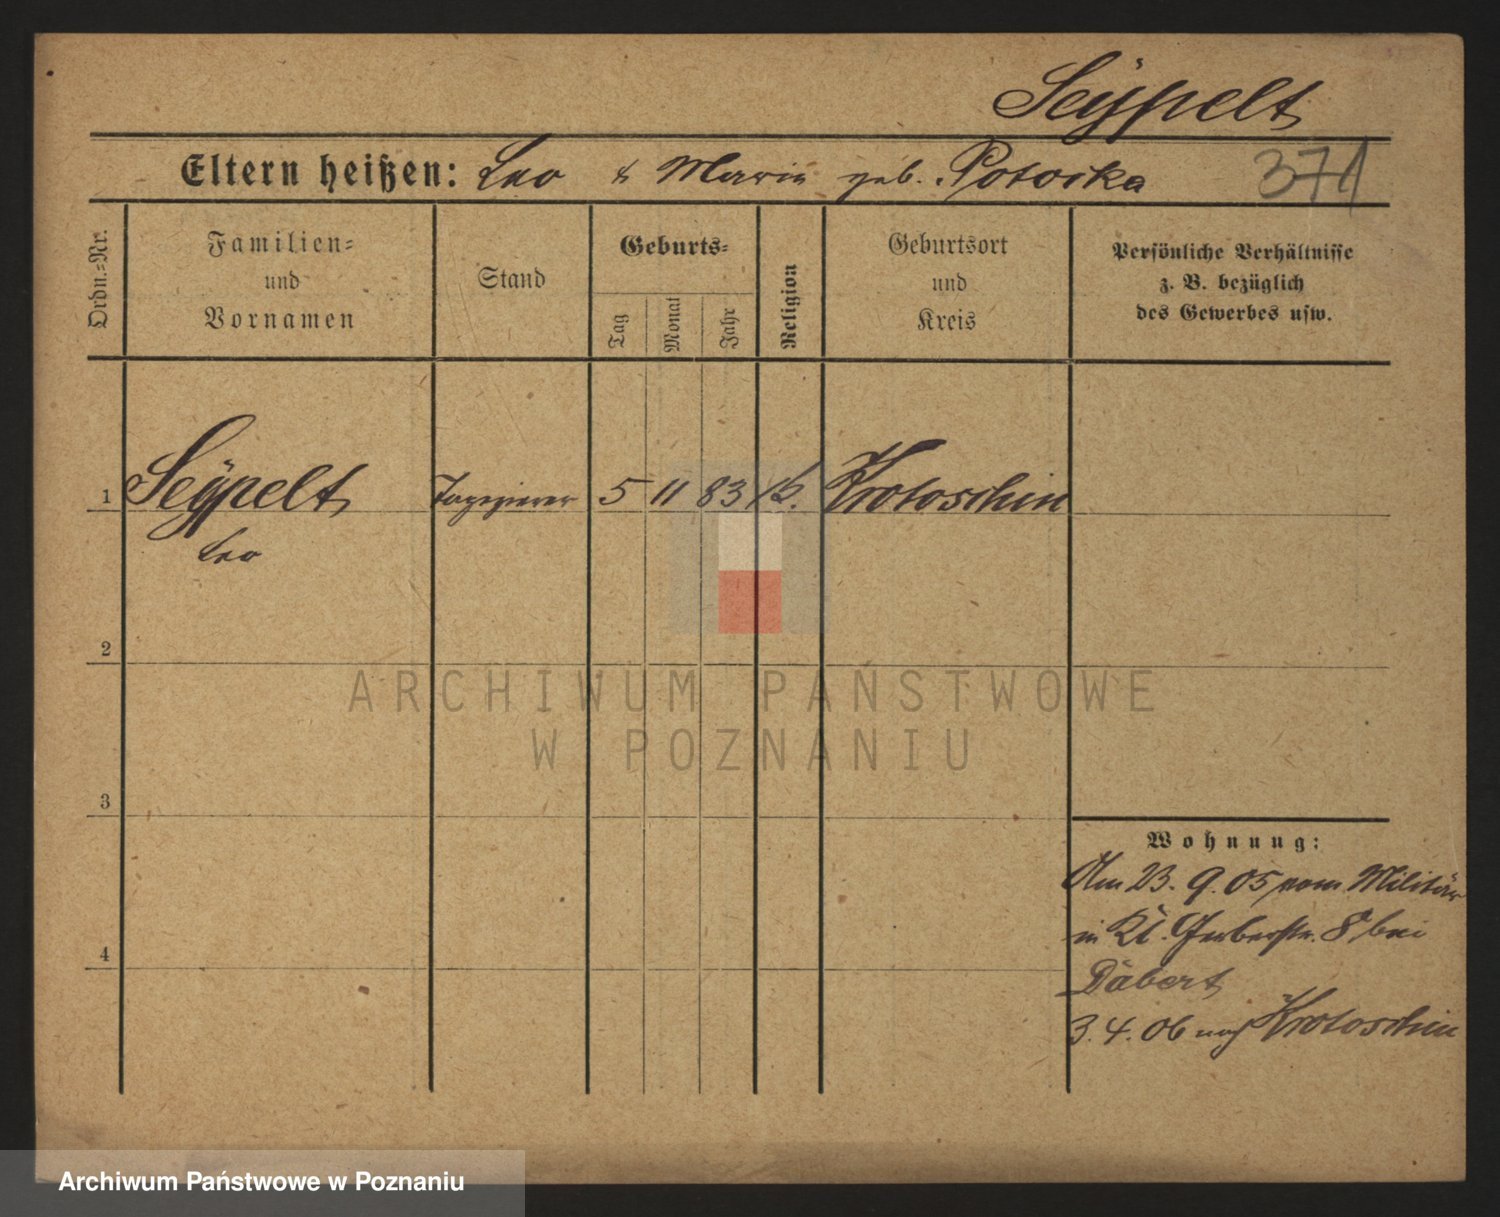 Seÿpelt
Eltern heißen: Leo & Marie geb. Potocka
371
Ordn.-Nr.
Familien-
und
Vornamen
Stand
Geburts-
Tag
Monat
Jahr
Religion
Geburtsort
und
Kreis
Persönliche Verhältnisse
z. B. bezüglich
des Gewerbes usw.
1 Seÿpelt Tapezierer 5 11 83 Krotoschin
Leo
2
3
4
ARCHIWUM PAŃSTWOWE
W POZNANIU
Wohnung:
Am 23. 9. 05 vom Militär
in Kl. Gerberstr. 8 bei
Däbert
3. 4. 06 nach Krotoschin
Archiwum Państwowe w Poznaniu